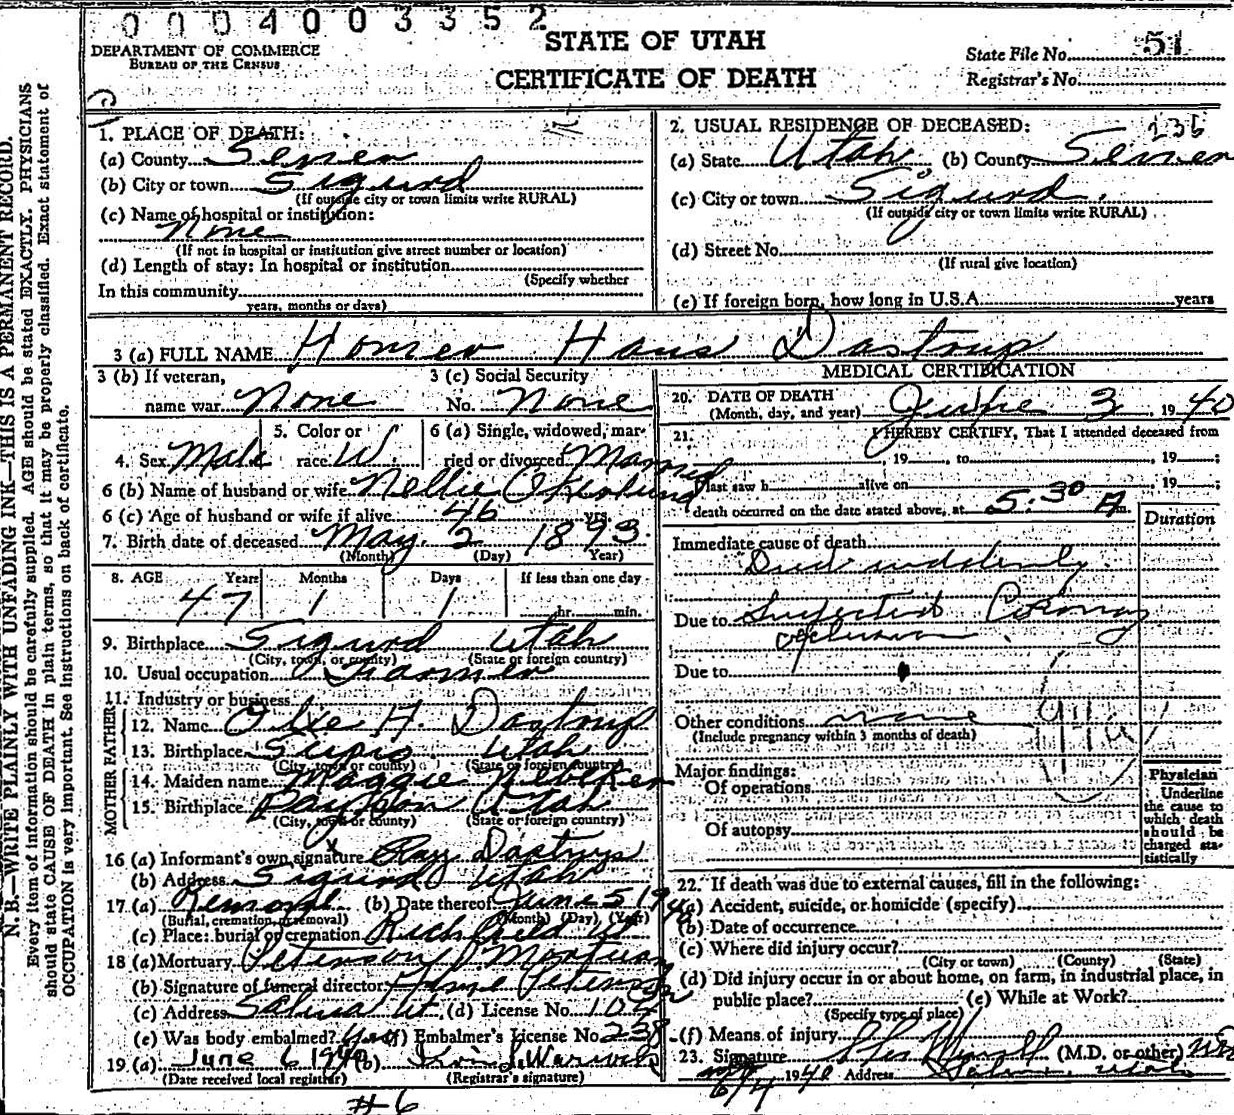 0004003352
DEPARTMENT OF COMMERCE
BUREAU OF THE CENSUS
STATE OF UTAH
CERTIFICATE OF DEATH
State File No. 51
Registrar's No.
N. B.—WRITE PLAINLY WITH UNFADING INK—THIS IS A PERMANENT RECORD.
Every item of information should be carefully supplied. AGE should be stated EXACTLY. PHYSICIANS
should state CAUSE OF DEATH in plain terms, so that it may be properly classified. Exact statement of
OCCUPATION is very important. See instructions on back of certificate.
1. PLACE OF DEATH:
(a) County Sevier
(b) City or town Sigurd
(If outside city or town limits write RURAL)
(c) Name of hospital or institution:
None
(If not in hospital or institution give street number or location)
(d) Length of stay: In hospital or institution
(Specify whether
In this community
years, months or days)
2. USUAL RESIDENCE OF DECEASED: 236
(a) State Utah (b) County Sevier
(c) City or town Sigurd.
(If outside city or town limits write RURAL)
(d) Street No.
(If rural give location)
(e) If foreign born, how long in U.S.A. years
3 (a) FULL NAME Homer Hans Dastrup
3 (b) If veteran,
name war None
3 (c) Social Security
No. None
4. Sex Male
5. Color or
race W.
6 (a) Single, widowed, mar-
ried or divorced Married
6 (b) Name of husband or wife Nellie
6 (c) Age of husband or wife if alive 46 yrs.
7. Birth date of deceased May 2 1893
(Month) (Day) (Year)
8. AGE Years Months Days If less than one day
47 1 1 hr. min.
9. Birthplace Sigurd Utah
(City, town, or county) (State or foreign country)
10. Usual occupation Farmer
11. Industry or business
FATHER
12. Name H. Dastrup
13. Birthplace Utah
(City, town or county) (State or foreign country)
MOTHER
14. Maiden name Maggie Nebeker
15. Birthplace Payson Utah
(City, town or county) (State or foreign country)
16 (a) Informant's own signature Ray Dastrup
(b) Address Sigurd Utah
17 (a) Removal (b) Date thereof June 5 1940
(Burial, cremation, or removal) (Month) (Day) (Year)
(c) Place: burial or cremation Richfield Ut
18 (a) Mortuary Peterson Mortuary
(b) Signature of funeral director Peterson
(c) Address Salina Ut. (d) License No. 102
(e) Was body embalmed? Yes (f) Embalmer's License No. 238
19 (a) June 6 1940 (b)
(Date received local registrar) (Registrar's signature)
#6
MEDICAL CERTIFICATION
20. DATE OF DEATH
(Month, day, and year) June 3, 1940
21. I HEREBY CERTIFY, That I attended deceased from
, 19 , to , 19 ;
last saw h alive on , 19 ;
death occurred on the date stated above, at 5:30 A m.
Duration
Immediate cause of death
Died suddenly.
Due to Suspected Coronary
occlusion.
Due to
Other conditions none
(Include pregnancy within 3 months of death)
94a
Major findings:
Of operations
Of autopsy
Physician
Underline
the cause to
which death
should be
charged sta-
tistically
22. If death was due to external causes, fill in the following:
(a) Accident, suicide, or homicide (specify)
(b) Date of occurrence
(c) Where did injury occur?
(City or town) (County) (State)
(d) Did injury occur in or about home, on farm, in industrial place, in
public place? (e) While at Work?
(Specify type of place)
(f) Means of injury
23. Signature (M.D. or other) MD
6/4 1940 Address Salina, Utah